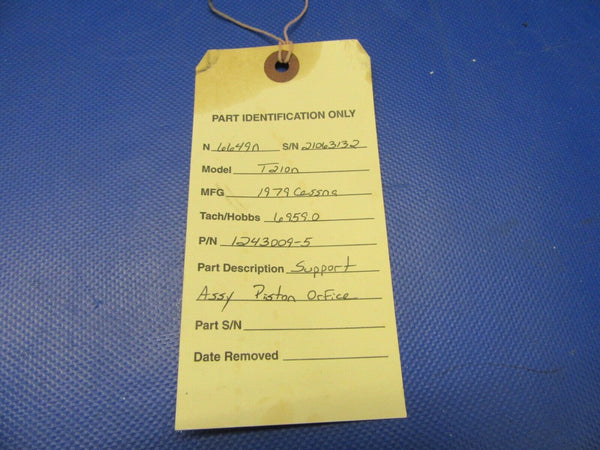 PART IDENTIFICATION ONLY
N 6649n S/N 21063132
Model T210n
MFG 1979 Cessna
Tach/Hobbs 6959.0
P/N 1243009-5
Part Description Support
Assy Piston Orfice
Part S/N
Date Removed